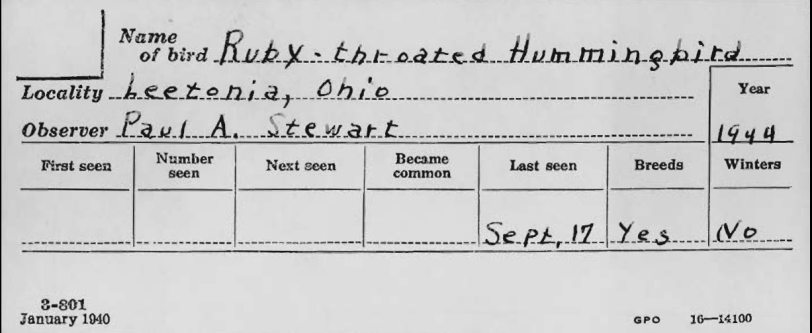 Name
of bird Ruby-throated Hummingbird
Locality Leetonia, Ohio
Year
Observer Paul A. Stewart 1944
First seen Number seen Next seen Became common Last seen Breeds Winters
Sept. 17 Yes No
3-801
January 1940 GPO 16—14100